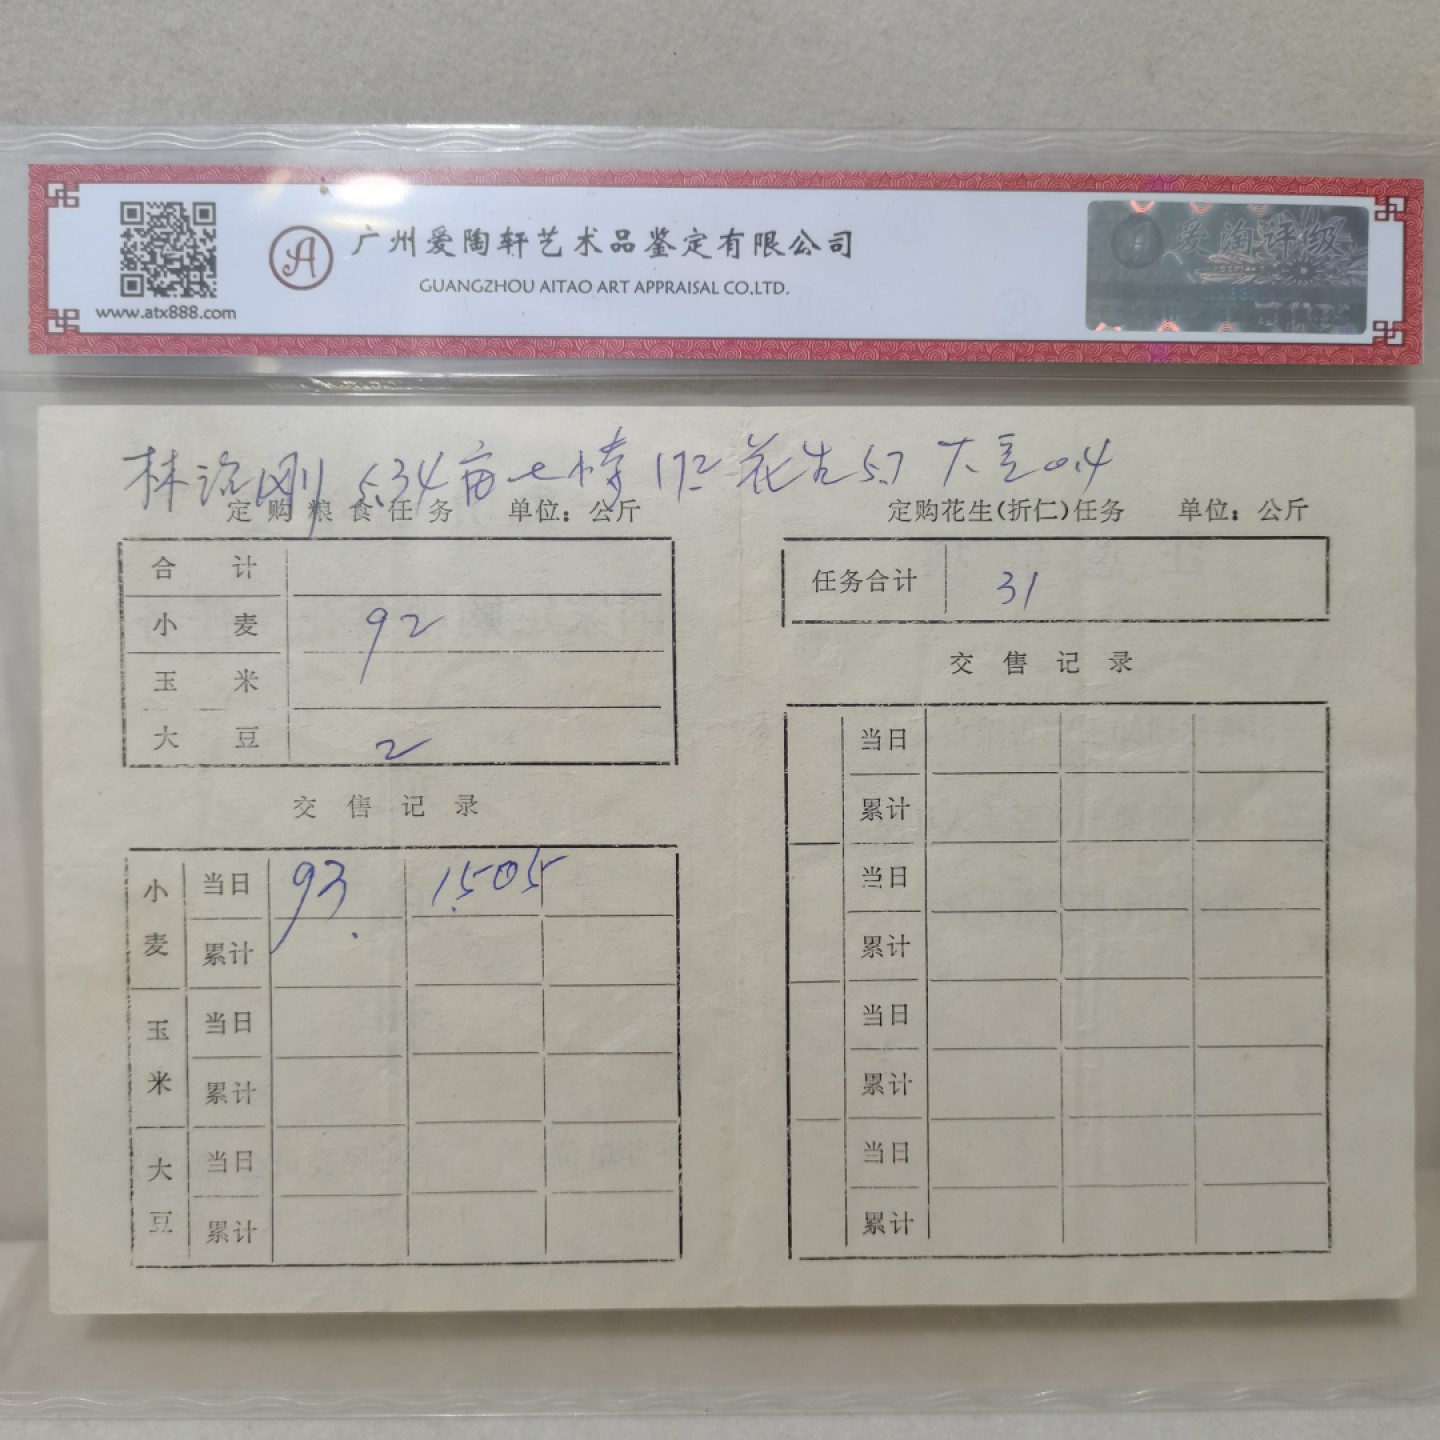 广州爱陶轩艺术品鉴定有限公司
GUANGZHOU AITAO ART APPRAISAL CO.LTD.
www.atx888.com
爱淘评级
林 刚 5.34亩 172 花生5.7 大豆0.4
定购粮食任务 单位：公斤
合计
小麦 92
玉米
大豆 2
交售记录
小麦 当日 93. 1505
累计
玉米 当日
累计
大豆 当日
累计
定购花生(折仁)任务 单位：公斤
任务合计 31
交售记录
当日
累计
当日
累计
当日
累计
当日
累计